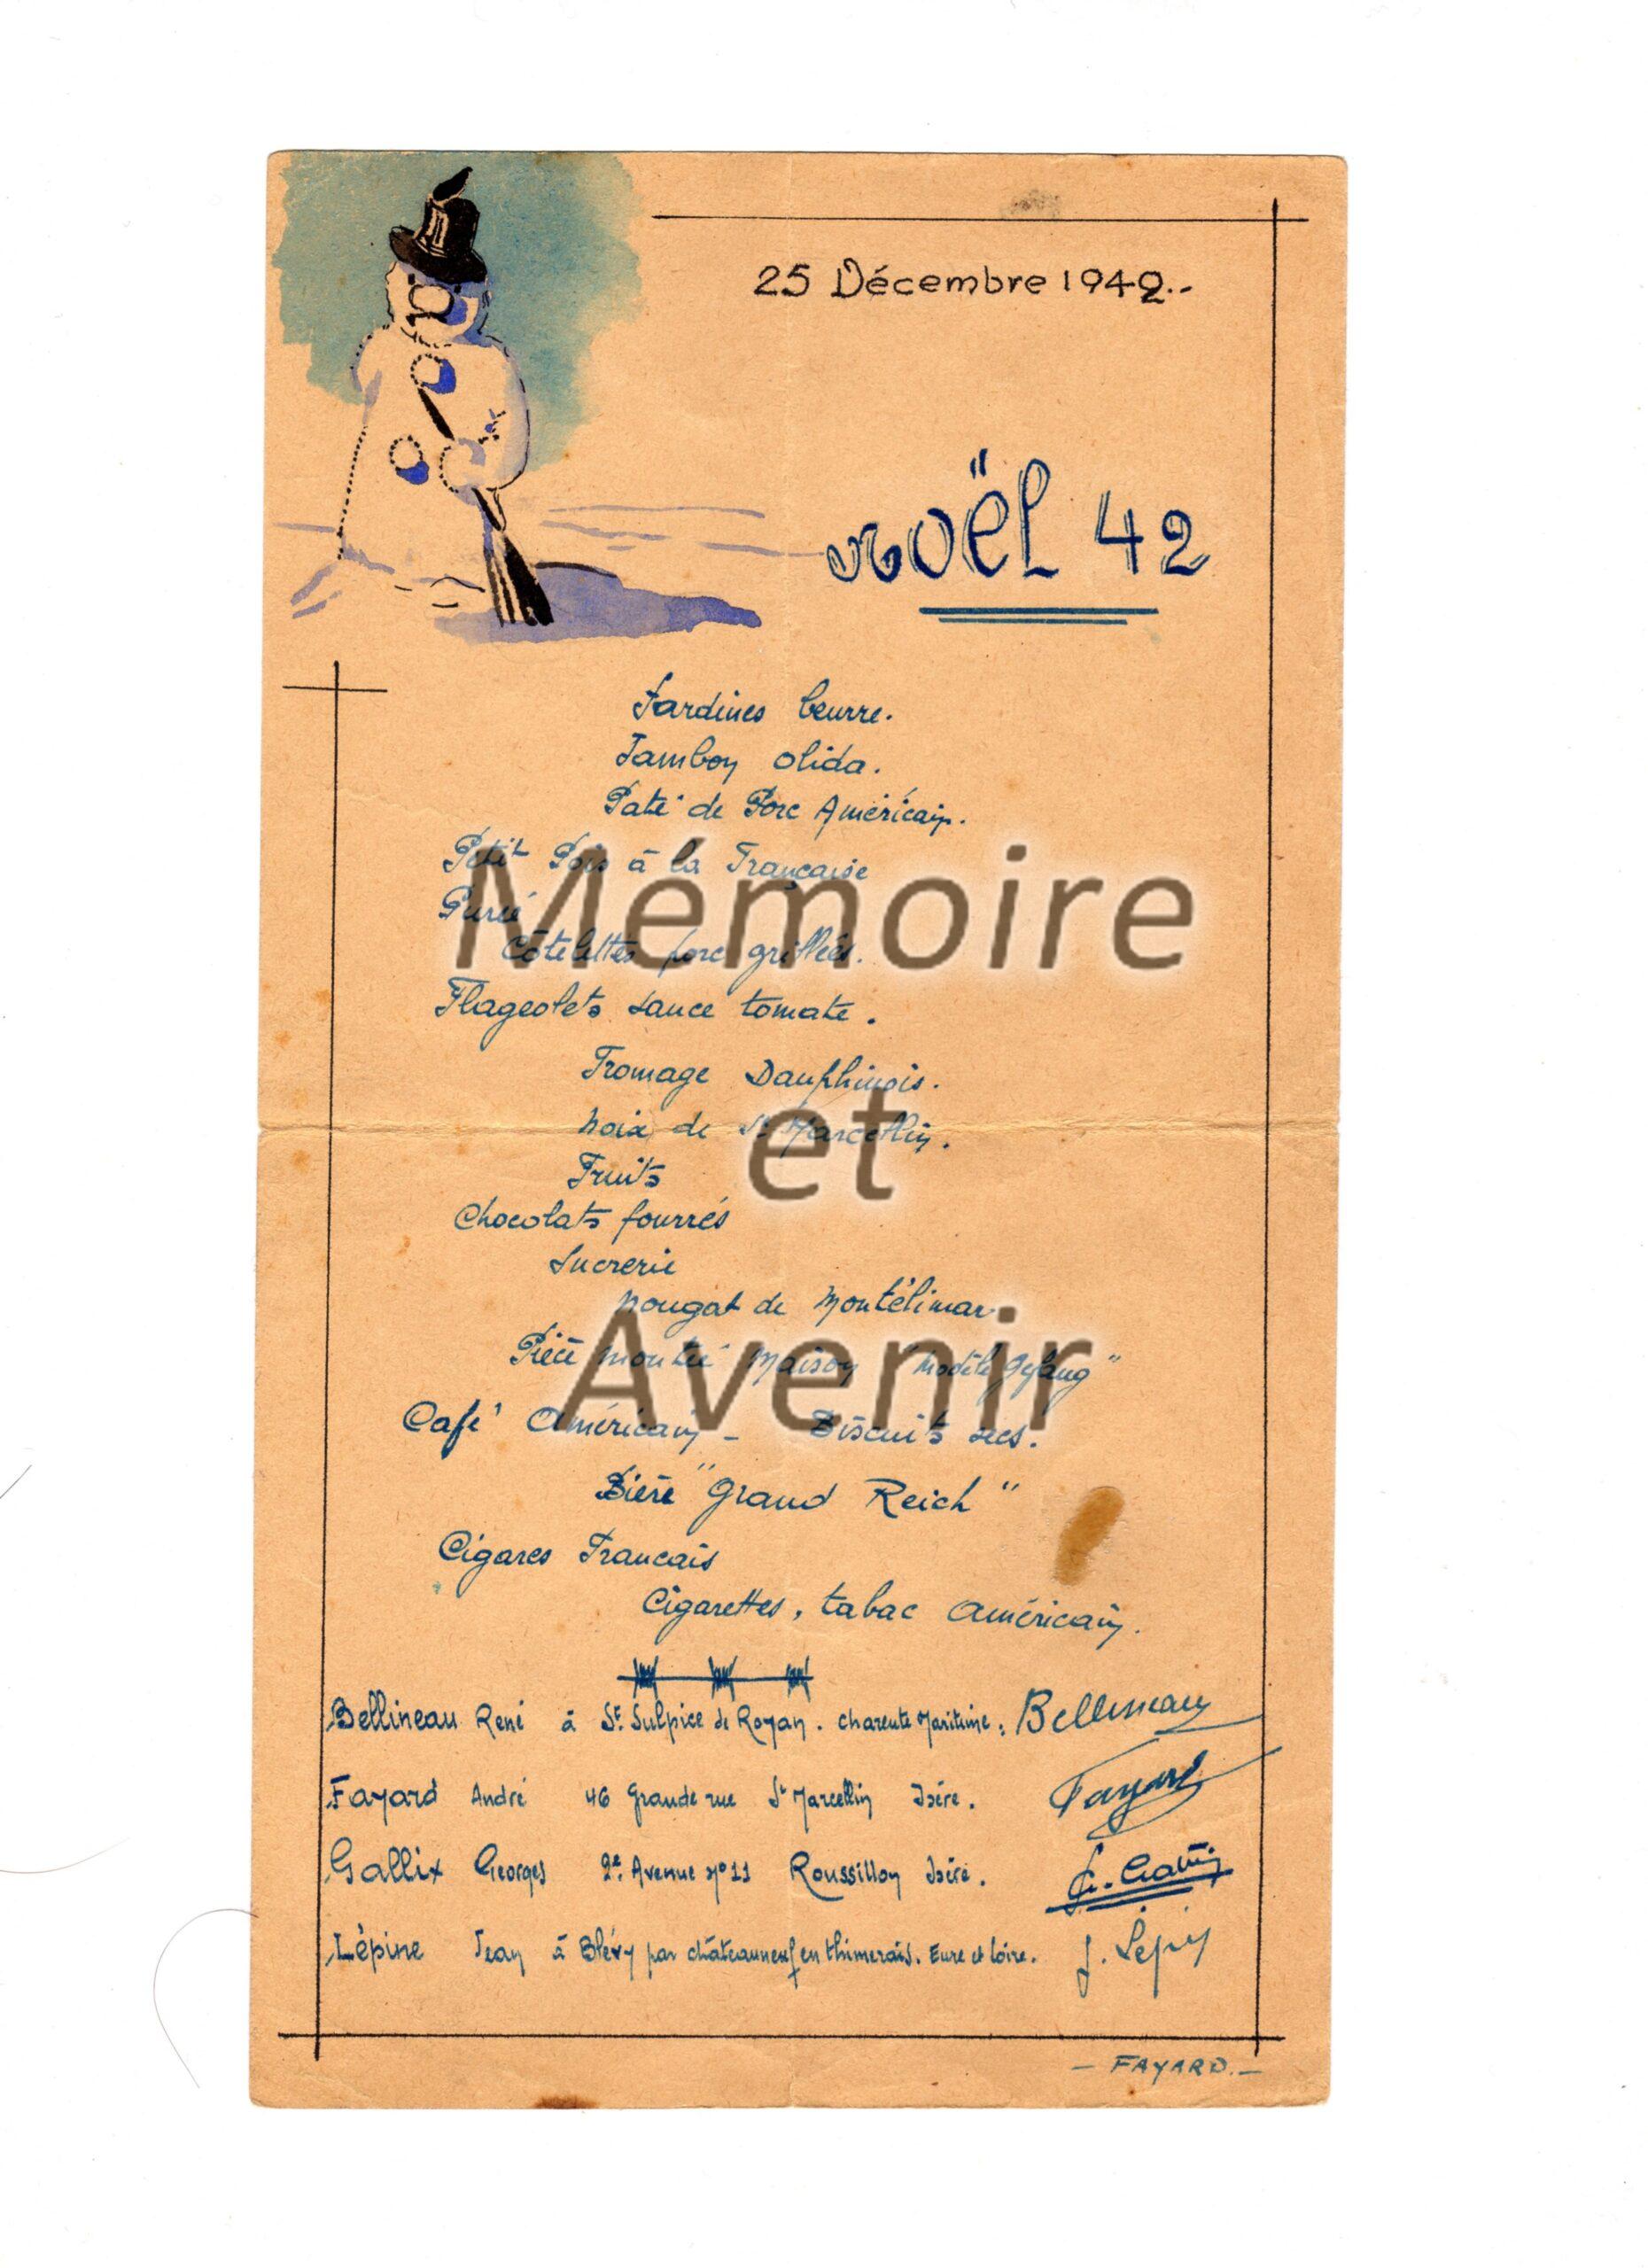 25 Décembre 1942.-
Noël 42
Sardines beurre.
Jambon olida.
Paté de Porc Américain.
Petit Pois à la Française
Purée
Côtelettes porc grillées.
Flageolets sauce tomate.
Fromage Dauphinois.
Noix de St Marcellin.
Fruits
Chocolats fourrés
Sucrerie
Nougat de Montélimar
Pièce montée Maison "Modèle Gefang"
Café Américain - Biscuits secs.
Bière "Grand Reich"
Cigares Francais
Cigarettes, tabac Américain.
Bellineau René à St. Sulpice de Royan. Charente Maritime. Bellineau
Fayard André 46 Grande rue St Marcellin Isère. Fayard
Gallix Georges 2e. Avenue No 11 Roussillon Isère. G. Gallix
Lépine Jean à Blévy par châteauneuf en thimerais. Eure et Loire. J. Lépin
- FAYARD. -
Mémoire
et
Avenir